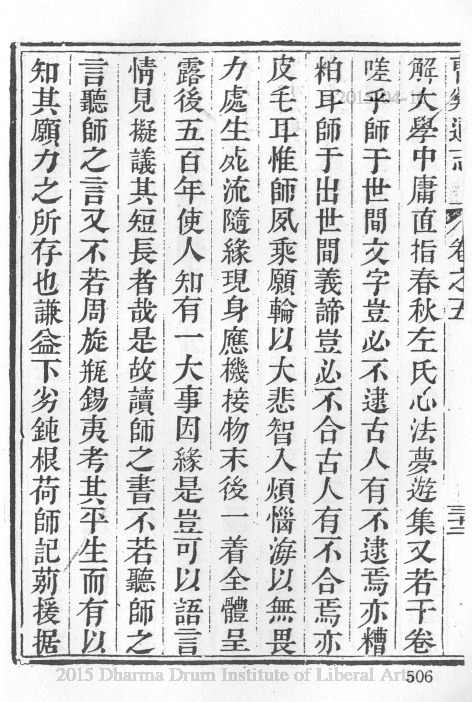 曹溪通志　卷之五　三十二
解大學中庸直指春秋左氏心法夢遊集又若干卷
嗟乎師于世間文字豈必不逮古人有不逮焉亦糟
粕耳師于出世間義諦豈必不合古人有不合焉亦
皮毛耳惟師夙乘願輪以大悲智入煩惱海以無畏
力處生死流隨緣現身應機接物末後一着全體呈
露後五百年使人知有一大事因緣是豈可以語言
情見擬議其短長者哉是故讀師之書不若聽師之
言聽師之言又不若周旋瓶錫夷考其平生而有以
知其願力之所存也謙益下劣鈍根荷師記莂援据
2015 Dharma Drum Institute of Liberal Arts
506